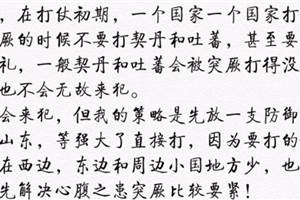 ，在打仗初期，一个国家一个国家打
厥的时候不要打契丹和吐蕃，甚至要
礼，一般契丹和吐蕃会被突厥打得没
也不会无故来犯。
会来犯，但我的策略是先放一支防御
山东，等强大了直接打，因为要打的
在西边，东边和周边小国地方少，也
先解决心腹之患突厥比较要紧！